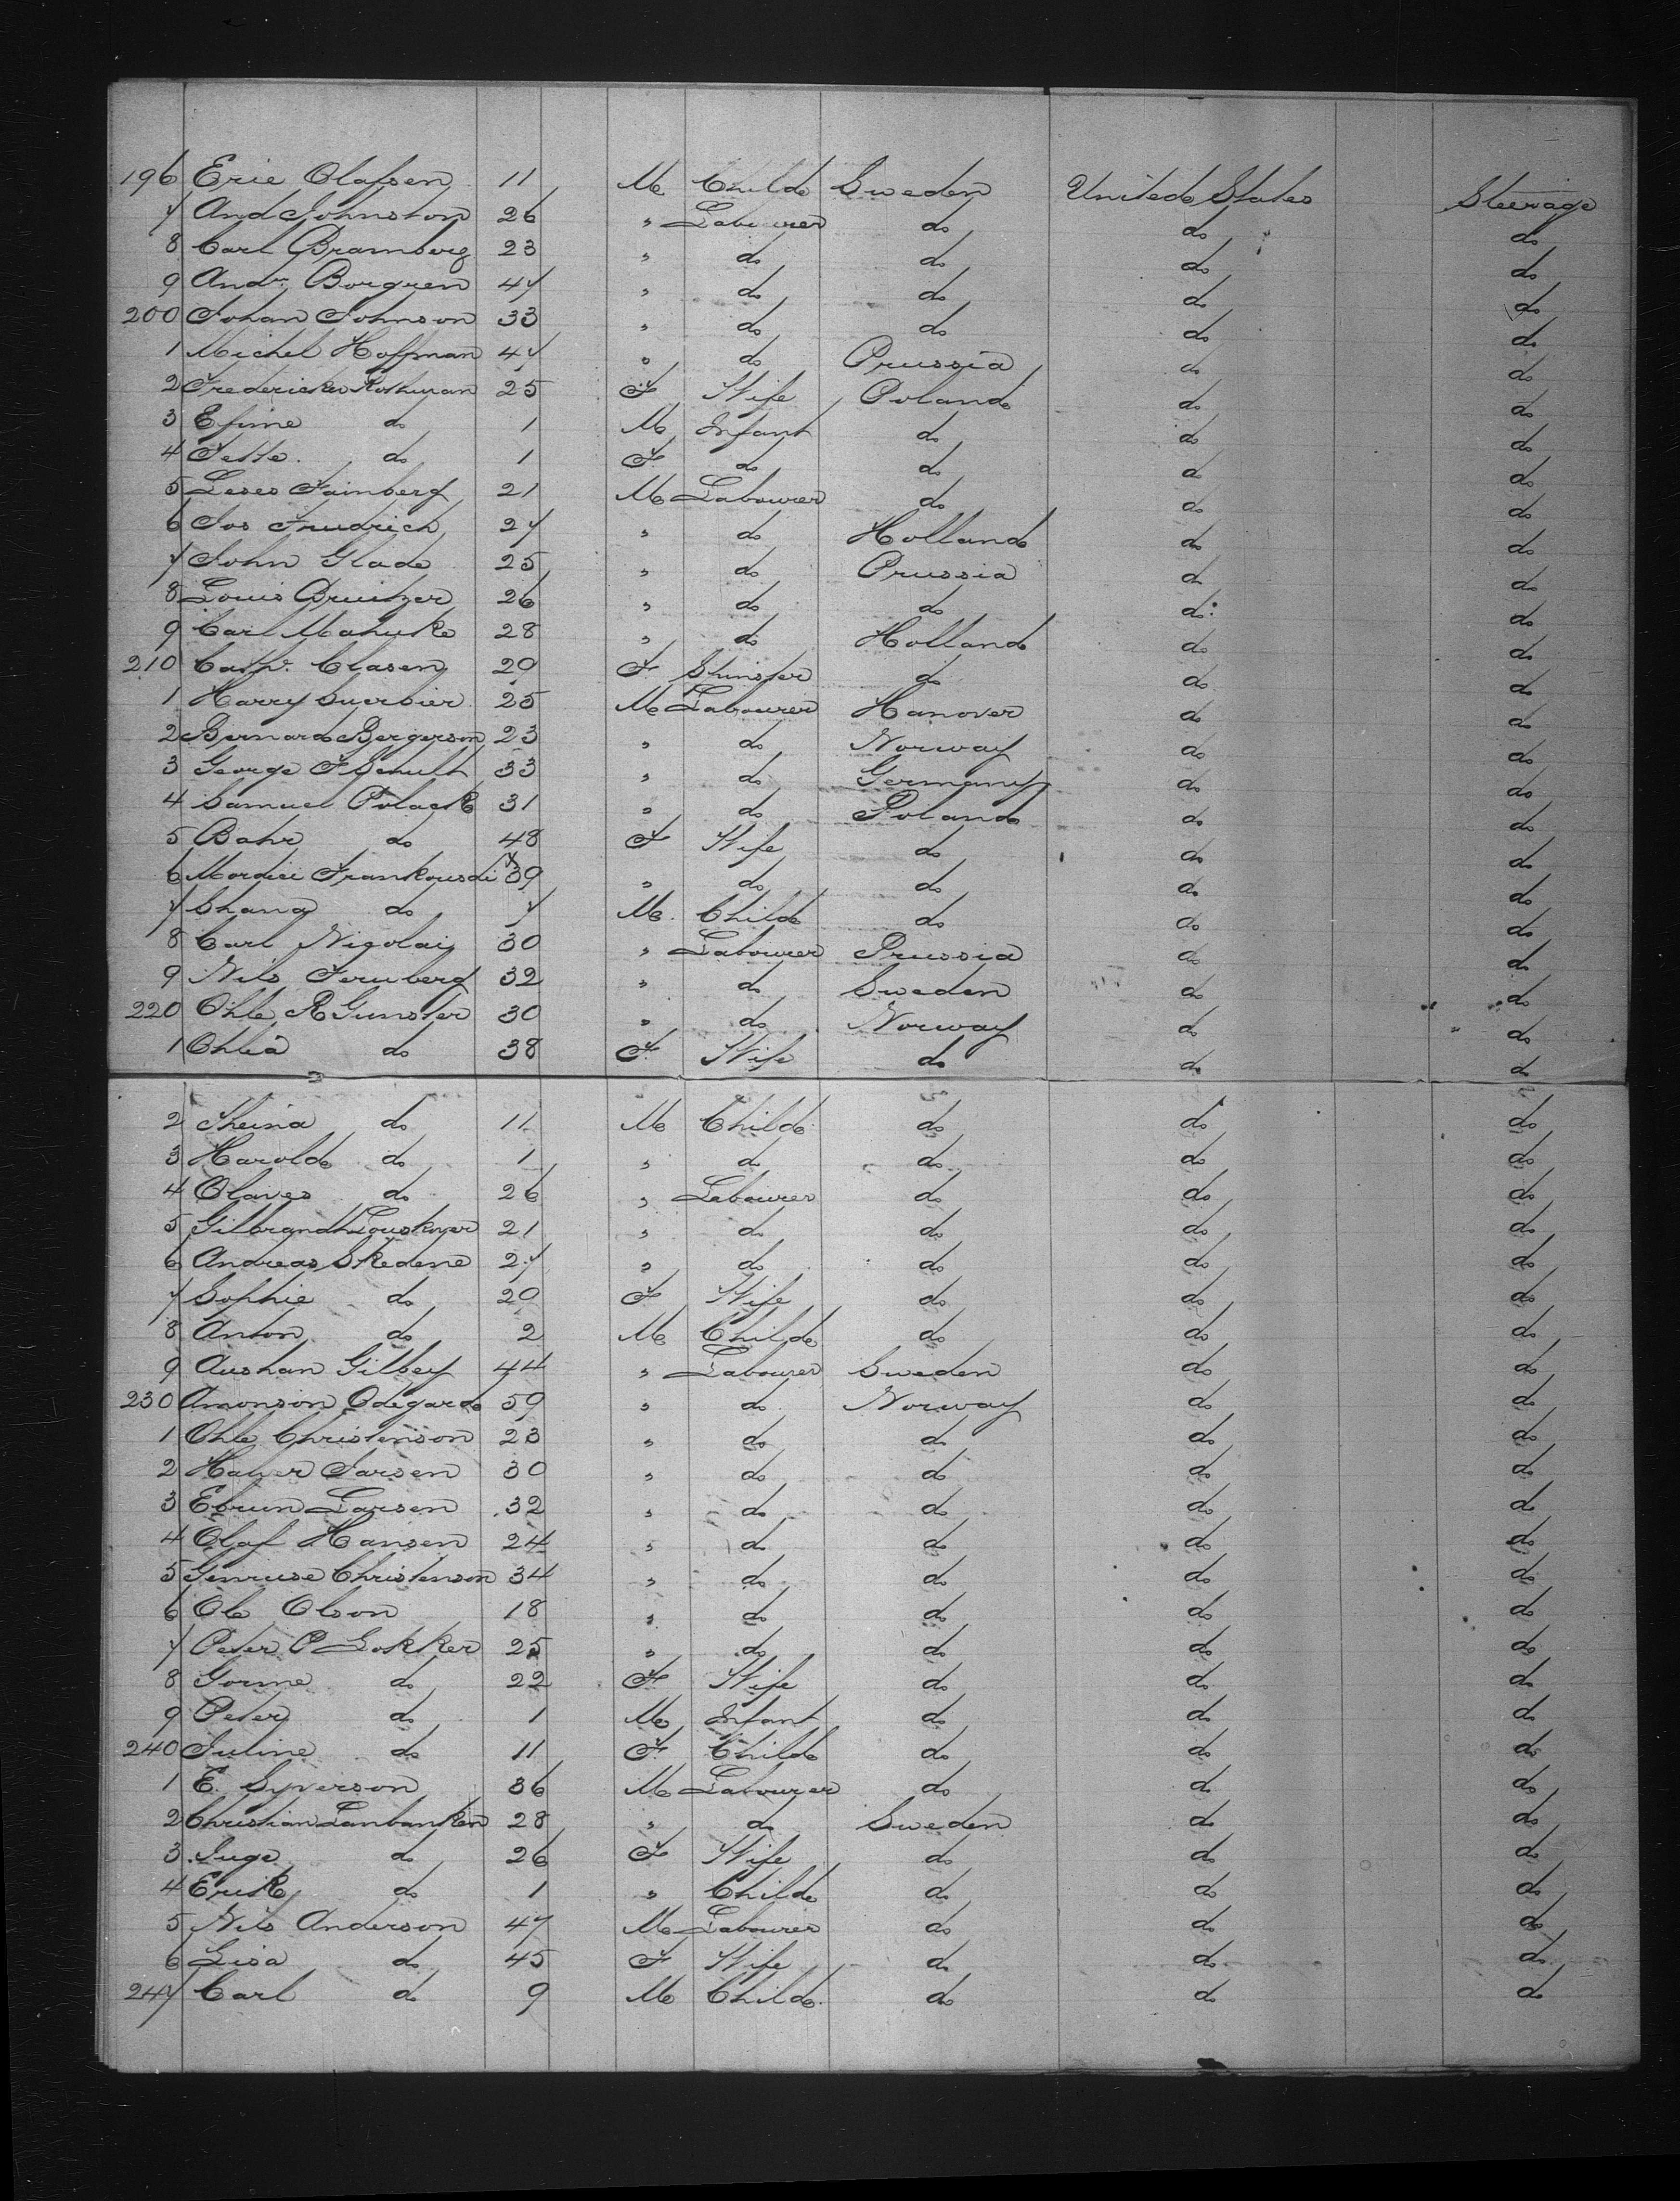 196 Eric Olafsen 11 M Child Sweden United States Steerage
7 And Johnston 26 " Labourer do do do
8 Carl Bramberg 23 " do do do do
9 Andw. Borgren 47 " do do do do
200 Johan Johnson 33 " do do do do
1 Michel Hoffman 47 " do Prussia do do
2 Fredericke 25 F Wife Poland do do
3 Efime do 1 M Infant do do do
4 Jette do 1 F do do do do
5 Leses Fainberg 21 M Labourer do do do
6 Jos Friedrich 27 " do Holland do do
7 John Glade 25 " do Prussia do do
8 Louis Druitzer 26 " do do do do
9 Carl Mahuke 28 " do Holland do do
210 Cathr. Clasen 29 F Spinster do do do
1 Harry Suerbier 25 M Labourer Hanover do do
2 Bernard Bergerson 23 " do Norway do do
3 George F Schult 33 " do Germany do do
4 Samuel Polack 31 " do Poland do do
5 Bahr do 48 F Wife do do do
6 Mordiei Frankousdi 39 " do do do do
7 Shana do 7 M Child do do do
8 Carl Nigolai 30 " Labourer Prussia do do
9 Nils Fernberg 32 " do Sweden do do
220 Ohle R Gunster 30 " do Norway do do
1 Ohlea do 38 F Wife do do do
2 Theina do 11 M Child do do do
3 Harold do 1 " do do do do
4 Olaves do 26 " Labourer do do do
5 Gilbrandt Louskoyer 21 " do do do do
6 Andreas Skedene 27 " do do do do
7 Sophie do 20 F Wife do do do
8 Anton do 2 M Child do do do
9 Aushan Gilbey 44 " Labourer Sweden do do
230 Amonson Odegard 59 " do Norway do do
1 Ohle Christenson 23 " do do do do
2 Halver Jarsen 30 " do do do do
3 Ebrun Larsen 32 " do do do do
4 Olaf Hansen 24 " do do do do
5 Genruse Christenson 34 " do do do do
6 Ole Olson 18 " do do do do
7 Peter P Lokker 25 " do do do do
8 Gorine do 22 F Wife do do do
9 Peter do 1 M Infant do do do
240 Juline do 11 F Child do do do
1 E. Syverson 36 M Labourer do do do
2 Christian Lanbanken 28 " do Sweden do do
3 Inge do 26 F Wife do do do
4 Erik do 1 " Child do do do
5 Nils Anderson 47 M Labourer do do do
6 Lisa do 45 F Wife do do do
247 Carl do 9 M Child do do do